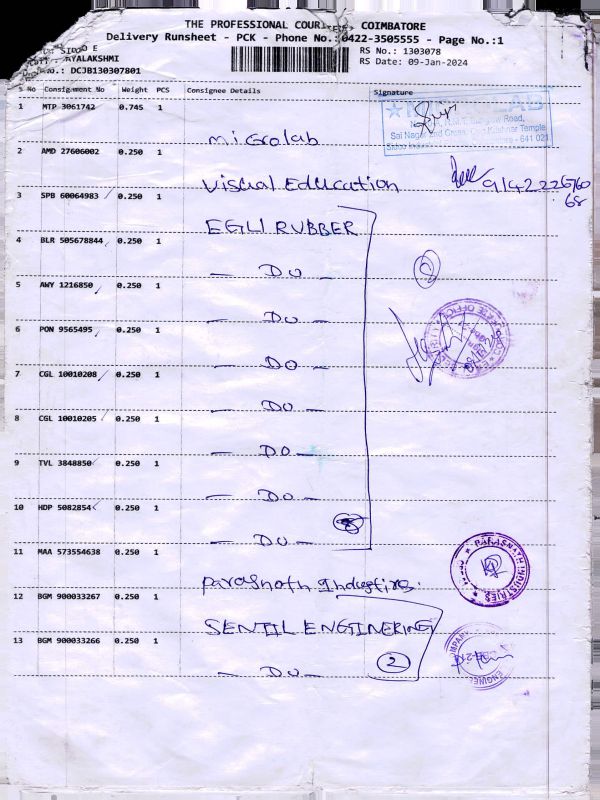 THE PROFESSIONAL COURIERS COIMBATORE
Delivery Runsheet - PCK - Phone No.: 0422-3505555 - Page No.:1
RS No.: 1303078
RS Date: 09-Jan-2024
DCJB130307801
S No Consignment No Weight PCS Consignee Details Signature
1 MTP 3061742 0.745 1 microlab
2 AMD 27606002 0.250 1 Visual Education
3 SPB 60064983 0.250 1 EGLI RUBBER
4 BLR 505678844 0.250 1 — DO —
5 AWY 1216850 0.250 1 — DO —
6 PON 9565495 0.250 1 — DO —
7 CGL 10010208 0.250 1 — DO —
8 CGL 10010205 0.250 1 — DO —
9 TVL 3848850 0.250 1 — DO —
10 HDP 5082854 0.250 1 — DO —
11 MAA 573554638 0.250 1 Parasnath
PARASNATH INDUSTRIES
12 BGM 900033267 0.250 1 SENTIL ENGINERING
13 BGM 900033266 0.250 1 — DO —
2